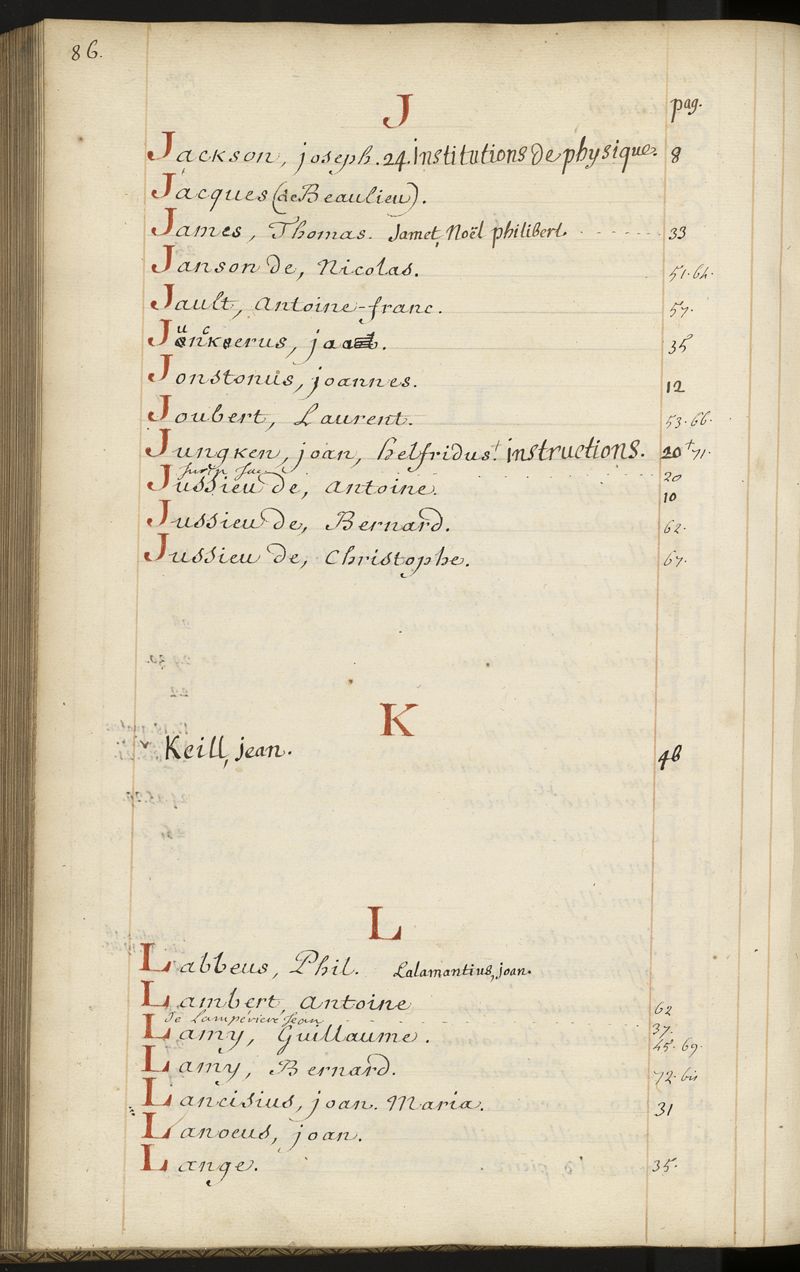 86.
J pag.
Jackson, joseph. 24. institutions de physique. 8
Jacques (de Beaulieu).
James, Thomas. Jamet, Noël philibert. 33
Janson de, Nicolas. 51. 64.
Jault, Antoine-franc. 57.
Junckerus, 35
Jonstonus, joannes. 12
Joubert, Laurent. 53. 66.
Jungken, joan, helfridus. instructions. 20 + 71.
20
Jussieu de, Antoine. 10
Jussieu de, Bernard. 62.
Jussieu de, Christophe. 67.
K
Keill, jean. 46
L
Labbeus, Phil. Lalamantius, joan.
Lambert, Antoine 62
De Lamperiere Jean 37.
Lamy, Guillaume. 45. 69.
Lamy, Bernard. 72. bis
Lancisius, joan. Maria. 31
Lanoeus, joan.
Lange. 35.